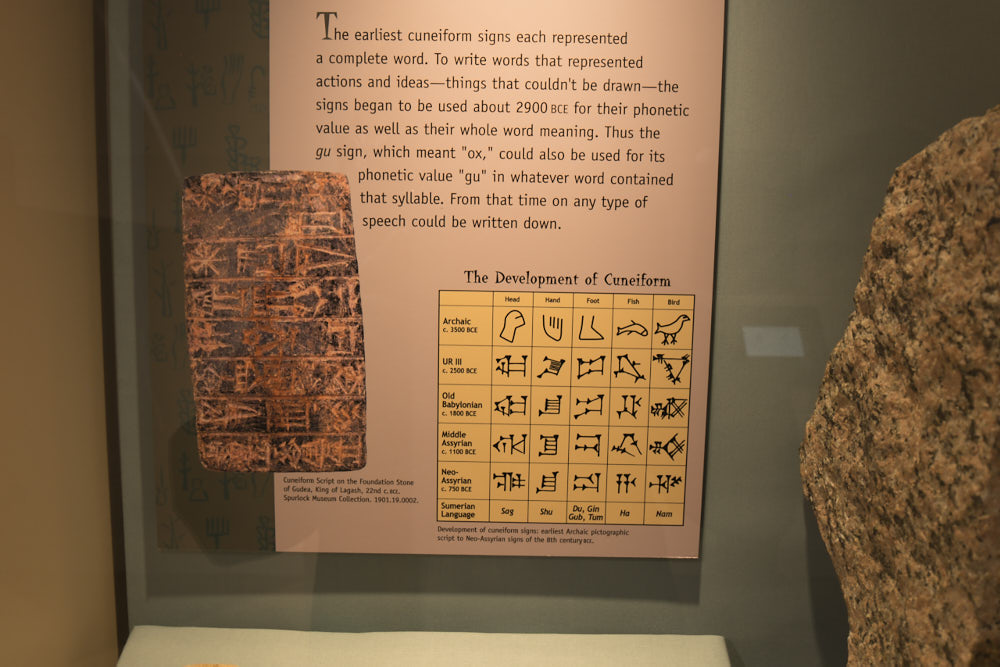 The earliest cuneiform signs each represented
a complete word. To write words that represented
actions and ideas—things that couldn't be drawn—the
signs began to be used about 2900 BCE for their phonetic
value as well as their whole word meaning. Thus the
gu sign, which meant "ox," could also be used for its
phonetic value "gu" in whatever word contained
that syllable. From that time on any type of
speech could be written down.
The Development of Cuneiform
Head Hand Foot Fish Bird
Archaic
c. 3500 BCE
UR III
c. 2500 BCE
Old
Babylonian
c. 1800 BCE
Middle
Assyrian
c. 1100 BCE
Neo-
Assyrian
c. 750 BCE
Sumerian
Language
Sag Shu Du, Gin
Gub, Tum Ha Nam
Cuneiform Script on the Foundation Stone
of Gudea, King of Lagash, 22nd c. BCE.
Spurlock Museum Collection. 1901.19.0002.
Development of cuneiform signs: earliest Archaic pictographic
script to Neo-Assyrian signs of the 8th century BCE.